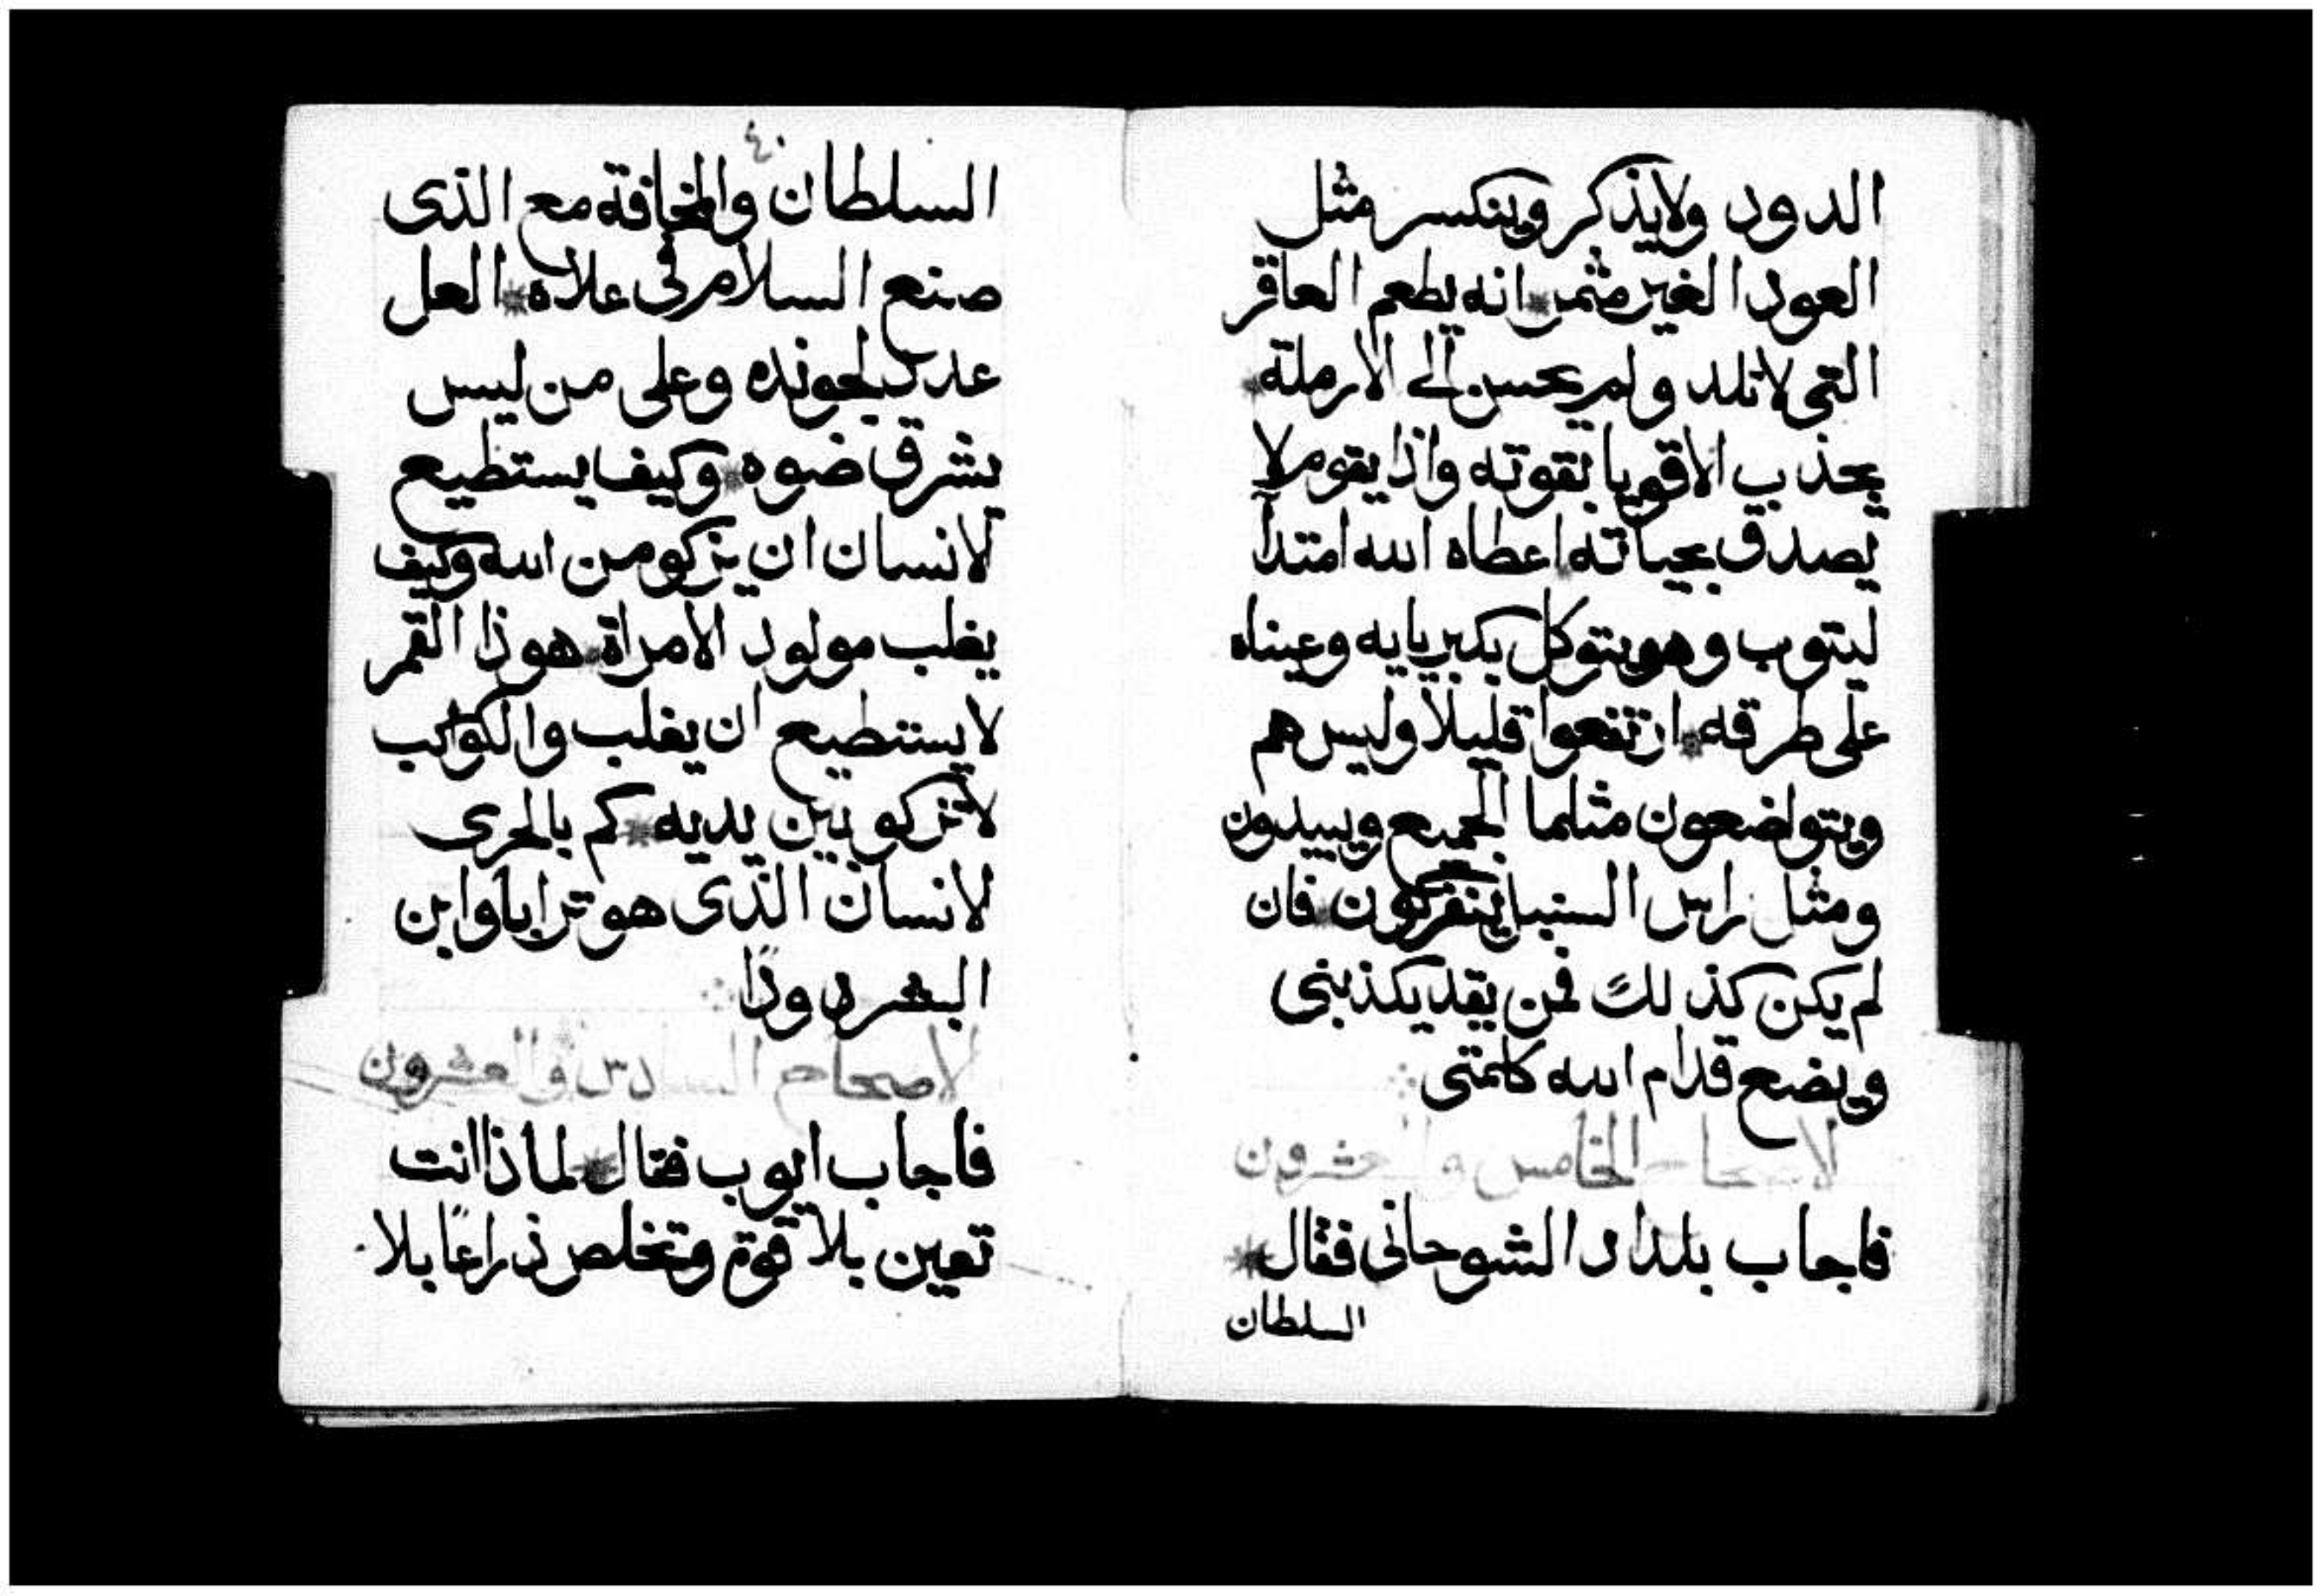 الدود ولايذكر وينكسر مثل
العود الغير مثمر انه يطعم العاقر
التى لاتلد ولم يحسن الى الارملة
يجذب الاقويا بقوته واذا يقوم لا
يصدق بحياته اعطاه الله امتدآ
ليتوب وهو يتوكل بكبريايه وعيناه
على طرقه ارتفعوا قليلا وليس هم
ويتواضعون مثلما الجميع ويبيدون
ومثل راس السنبل ينفركون فان
لم يكن كذلك فمن يقد يكذبنى
ويضع قدام الله كلمتى
لاصحاح الخامس والعشرون
فاجاب بلداد الشوحانى فقال
السلطان
٤٠
السلطان والمخافة مع الذى
صنع السلام فى علاه العل
عدد لجونده وعلى من ليس
يشرق ضوه وكيف يستطيع
لانسان ان يزكو من الله وكيف
يغلب مولود الامراة هوذا القمر
لا يستطيع ان يغلب والكواكب
لا تزكو بين يديه كم بالحرى
لانسان الذى هو ترابا وابن
البشر دودا
لاصحاح السادس والعشرون
فاجاب ايوب فقال لماذا انت
تعين بلا قوة وتخلص ذراعًا بلا